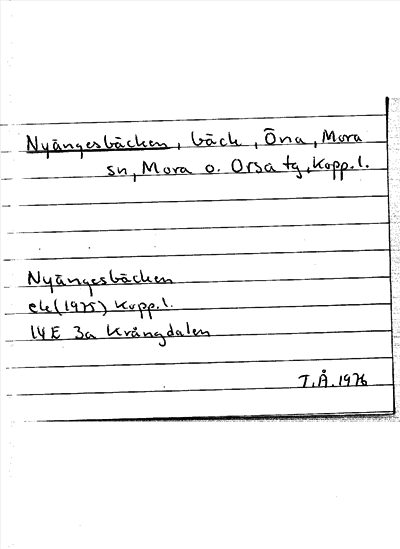 Nyängesbäcken, bäck, Öna, Mora
sn, Mora o. Orsa tg, Kopp. l.
Nyängesbäcken
ek (1975) Kopp. l.
14E 3a Krångdalen
T.Å. 1976